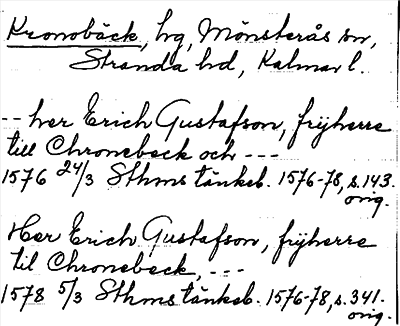 Kronobäck, hg, Mönsterås sn,
Stranda hd, Kalmar l.
-- her Erich Gustafson, frijherre
till Chronebeck och ---
1576 24/3 Sthms tänkeb. 1576-78, s. 143.
orig.
Her Erich Gustafson, frijherre
til Chronebeck, ---
1578 5/3 Sthms tänkeb. 1576-78, s. 341.
orig.